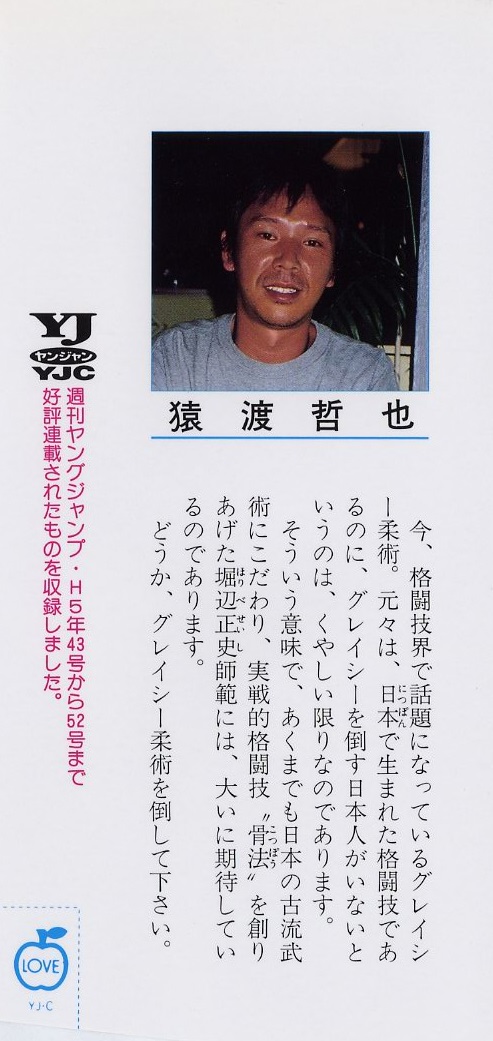 猿渡哲也
今、格闘技界で話題になっているグレイシ
ー柔術。元々は、日本で生まれた格闘技であ
にっぽん
るのに、グレイシーを倒す日本人がいないと
いうのは、くやしい限りなのであります。
そういう意味で、あくまでも日本の古流武
術にこだわり、実戦的格闘技〝骨法〟を創り
こっぽう
あげた堀辺正史師範には、大いに期待してい
ほりべせいし
るのであります。
どうか、グレイシー柔術を倒して下さい。
YJ
ヤンジャン
YJC
週刊ヤングジャンプ・H5年43号から52号まで
好評連載されたものを収録しました。
LOVE
YJ·C